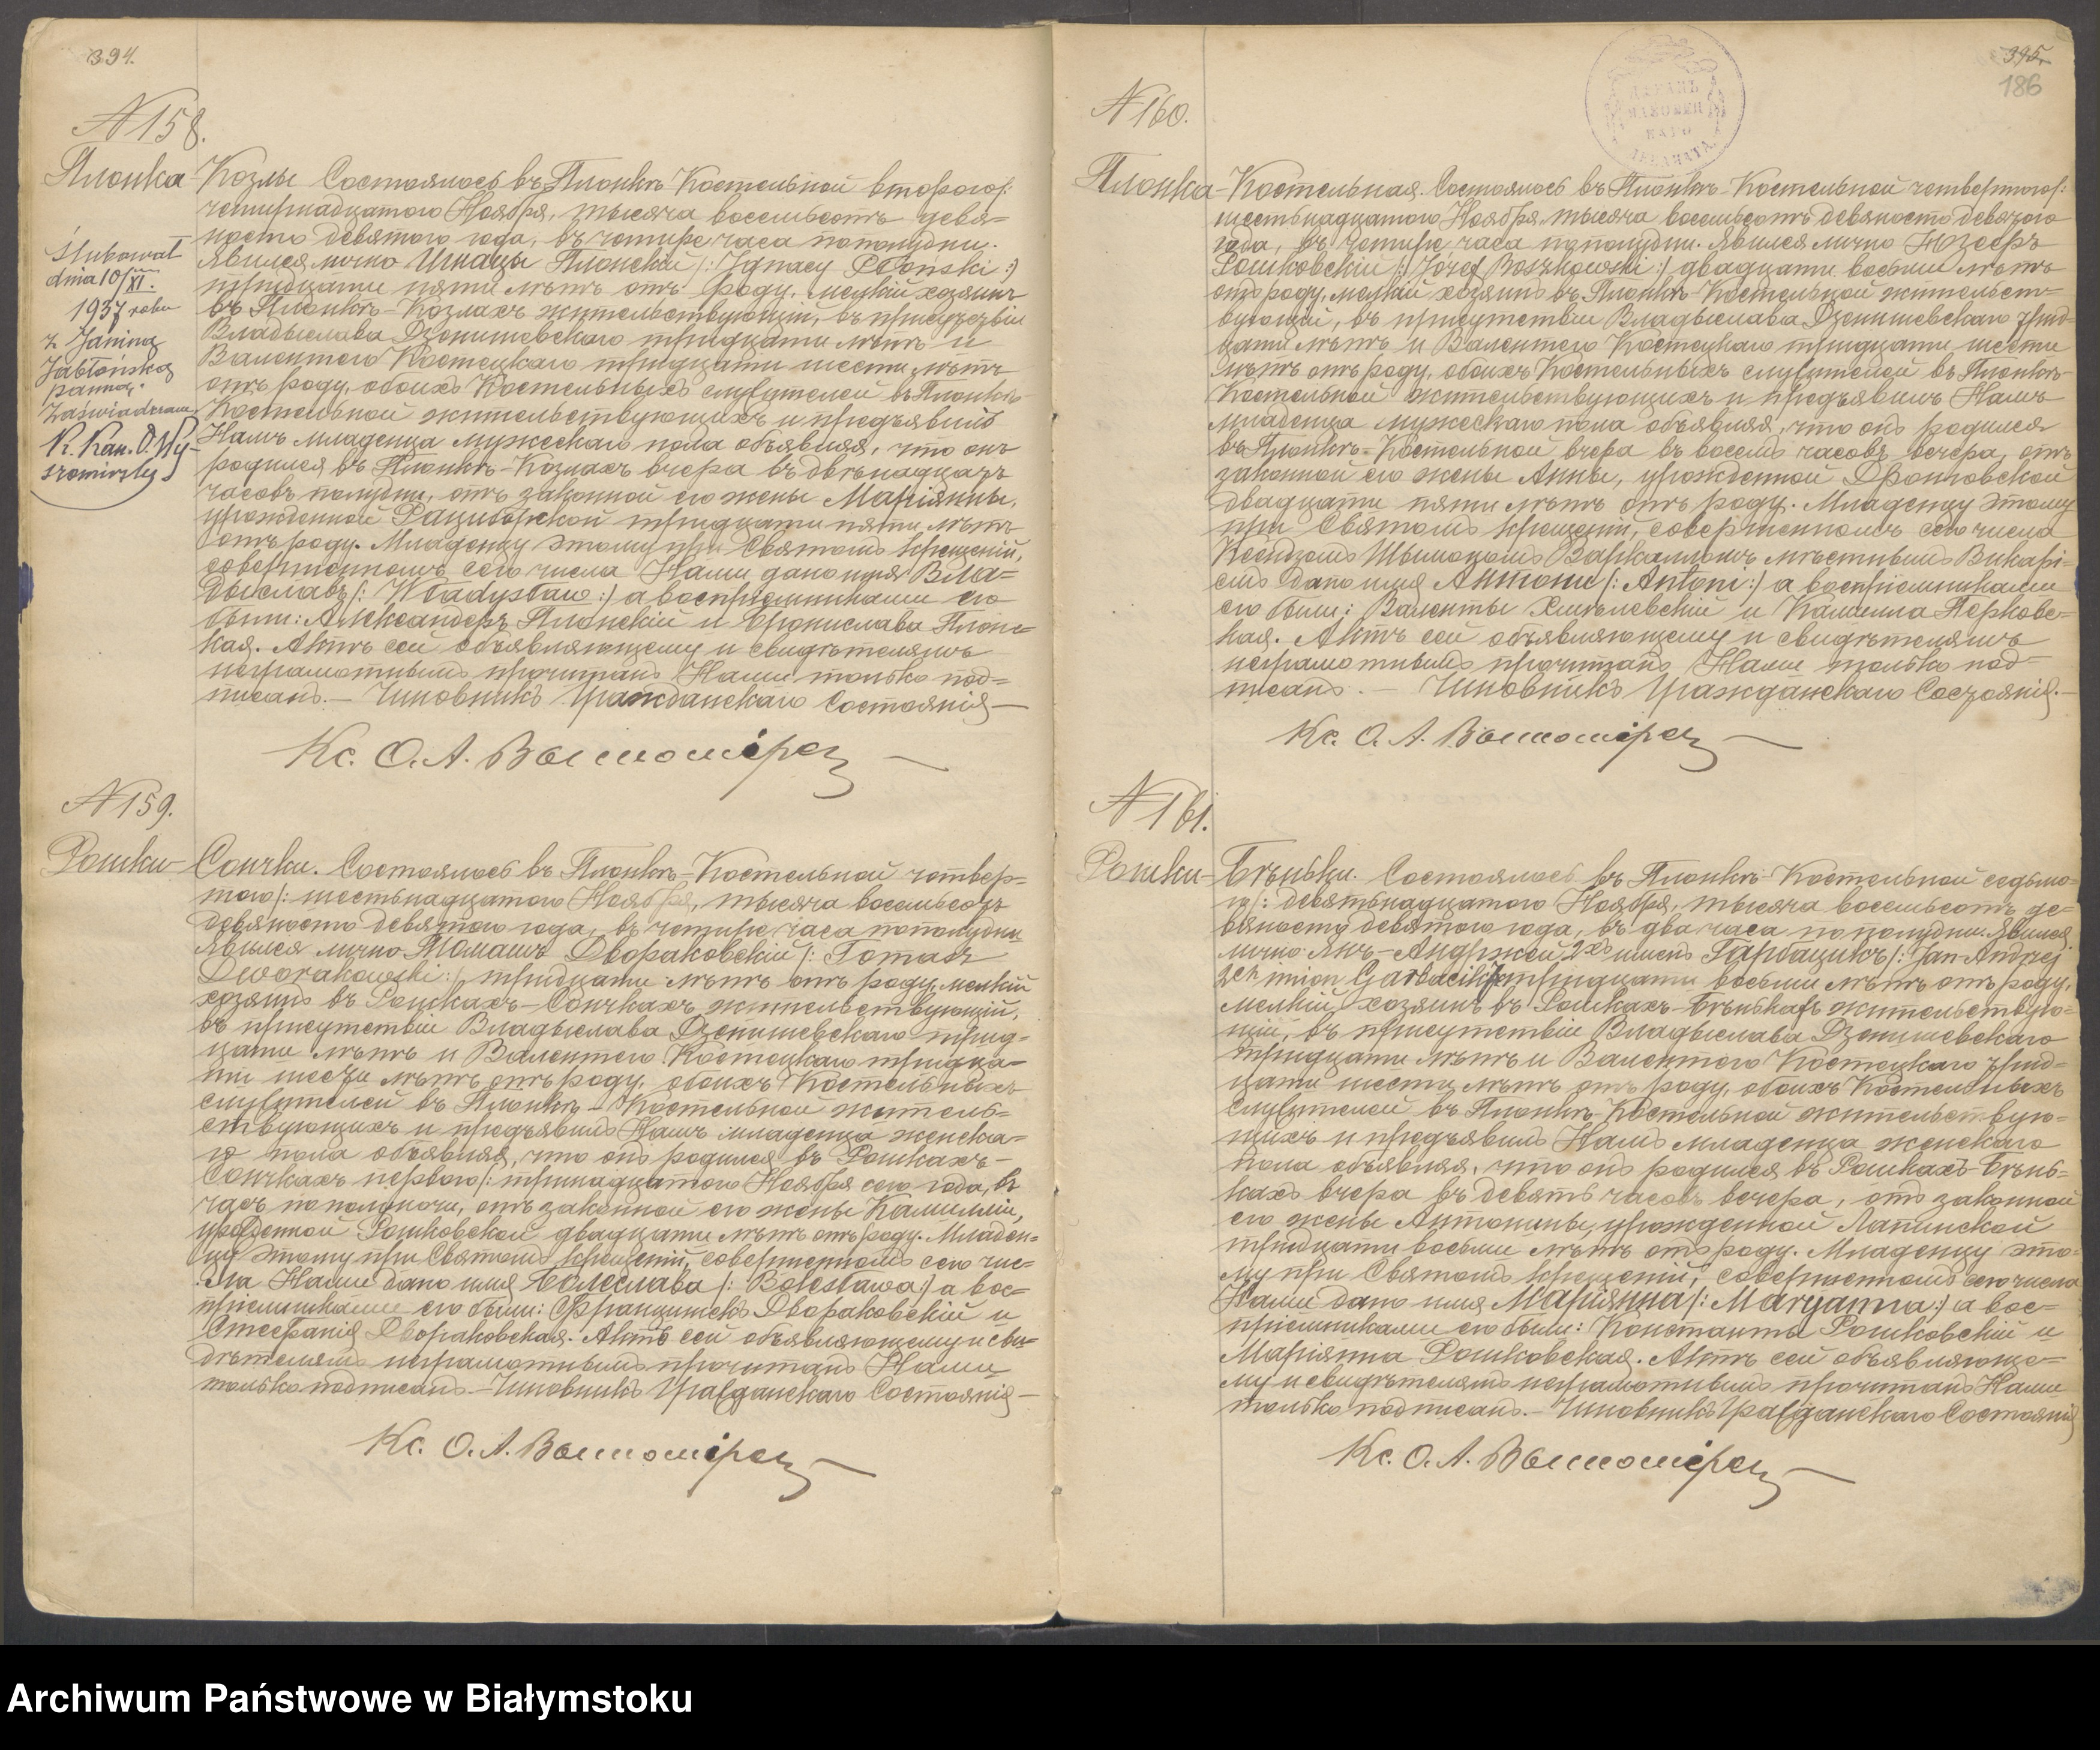 394.
N 158.
Плонка Козлы Состоялось въ Плонкѣ Костельной второго/:
четырнадцатого Ноября, тысяча восемьсотъ девя=
носто девятого года, въ четыре часа пополудни.
Явился лично Игнацы Плонскій /: Ignacy Płoński :/
тридцати пяти лѣтъ отъ роду, мелкій хозяинъ
въ Плонкѣ-Козлахъ жительствующій, въ присутствіи
Владыслава Дзенишевскаго тридцати лѣтъ и
Валентего Костецкаго тридцати шести лѣтъ
отъ роду, обоихъ Костельныхъ служителей въ Плонкѣ
Костельной жительствующихъ и предъявилъ
Намъ младенца мужескаго пола объявляя, что онъ
родился въ Плонкѣ-Козлахъ вчера въ двѣнадцать
часовъ полудни, отъ законной его жены Маріянны,
урожденной Рациборской тридцати пяти лѣтъ
отъ роду. Младенцу этому при Святомъ крещеніи,
совершенномъ сего числа Нами дано имя Вла=
дыславъ /: Władysław :/ а воспріемниками его
были: Александеръ Плонскій и Брониславa Плонс=
кая. Актъ сей объявляющему и свидѣтелямъ
неграмотнымъ прочитанъ Нами только под=
писанъ.- Чиновникъ Гражданскаго Состоянія-
Кс. О. А. Вышомірск
Ślubował
dnia 10/XI.
1937 roku
z Janiną
Jabłońską
panną.
Zaświadczam
K. Kan. O. Wy-
szomirsky
N 159.
Рошки- Сончки. Состоялось въ Плонкѣ-Костельной четвер=
того/: шестьнадцатого Ноября, тысяча восемьсотъ
девяносто девятого года, въ четыре часа пополудни
явился лично Томашъ Двораковскій /: Tomasz
Dworakowski :/ тридцати лѣтъ отъ роду, мелкій
хозяинъ въ Рошкахъ-Сончкахъ жительствующій,
въ присутствіи Владыслава Дзенишевскаго трид-
цати лѣтъ и Валентего Костецкаго тридца-
ти шести лѣтъ отъ роду, обоихъ Костельныхъ
служителей въ Плонкѣ-Костельной житель=
ствующихъ и предъявилъ Намъ младенца женска-
го пола объявляя, что онъ родился въ Рошкахъ-
Сончкахъ первого/: тринадцатого Ноября сего года, въ
часъ по полуночи, отъ законной его жены Камиліи,
урожденной Рошковской двадцати лѣтъ отъ роду. Младен=
цу этому при Святомъ крещеніи, совершенномъ сего чис=
ла Нами дано имя Болеслава /: Bolesława :/ а вос=
пріемниками его были: Францишекъ Двораковскій и
Стефанія Двораковская. Актъ сей объявляющему и сви=
дѣтелямъ неграмотнымъ прочитанъ Нами
только подписанъ.-Чиновникъ Гражданскаго Состоянія-
Кс. О. А. Вышомірск
395
186
ДЕКАНЪ
МАЗОВЕЦ
КАГО
ДЕКАНАТА
N 160.
Плонка-Костельная. Состоялось въ Плонкѣ-Костельной четвертого/:
шестьнадцатого Ноября, тысяча восемьсотъ девяносто девятого
года, въ четыре часа пополудни. Явился лично Юзефъ
Рошковскій /: Józef Roszkowski :/ двадцати восьми лѣтъ
отъ роду, мелкій хозяинъ въ Плонкѣ-Костельной жительст=
вующій, въ присутствіи Владыслава Дзенишевскаго трид=
цати лѣтъ и Валентего Костецкаго тридцати шести
лѣтъ отъ роду, обоихъ Костельныхъ служителей въ Плонкѣ-
Костельной жительствующихъ и предъявилъ Намъ
младенца мужескаго пола объявляя, что онъ родился
въ Плонкѣ-Костельной вчера въ восемь часовъ вечера, отъ
законной его жены Анны, урожденной Дронговской
двадцати пяти лѣтъ отъ роду. Младенцу этому
при Святомъ крещеніи, совершенномъ сего числа
Ксендзомъ Шымономъ мѣстнымъ Викарі-
емъ дано имя Антони /: Antoni :/ а воспріемниками
его были: Валенты Хмѣлевскій и Камилла Перковс-
кая. Актъ сей объявляющему и свидѣтелямъ
неграмотнымъ прочитанъ Нами только под=
писанъ.- Чиновникъ Гражданскаго Состоянія.-
Кс. О. А. Вышомірск
N 161.
Рошки- Бѣньки. Состоялось въ Плонкѣ-Костельной седьмо=
го/: девятьнадцатого Ноября, тысяча восемьсотъ де=
вяносто девятого года, въ два часа по полудни. Явился
лично Янъ-Анджей 2хъ именъ Гарбацикъ /: Jan-Andrzej
2ch imion Garbacik :/ тридцати восьми лѣтъ отъ роду,
мелкій хозяинъ въ Рошкахъ-Бѣнькахъ жительствую=
щій, въ присутствіи Владыслава Дзенишевскаго
тридцати лѣтъ и Валентего Костецкаго трид=
цати шести лѣтъ отъ роду, обоихъ Костельныхъ
служителей въ Плонкѣ-Костельной жительствую=
щихъ и предъявилъ Намъ младенца женскаго
пола объявляя, что онъ родился въ Рошкахъ-Бѣнь=
кахъ вчера въ девять часовъ вечера, отъ законной
его жены Антонины, урожденной Лапинской
тридцати восьми лѣтъ отъ роду. Младенцу это=
му при Святомъ крещеніи, совершенномъ сего числа
Нами дано имя Маріянна /: Maryanna :/ а вос=
пріемниками его были: Константы Рошковскій и
Маріянна Рошковская. Актъ сей объявляюще=
му и свидѣтелямъ неграмотнымъ прочитанъ Нами
только подписанъ.- Чиновникъ Гражданскаго Состоянія
Кс. О. А. Вышомірск
Archiwum Państwowe w Białymstoku